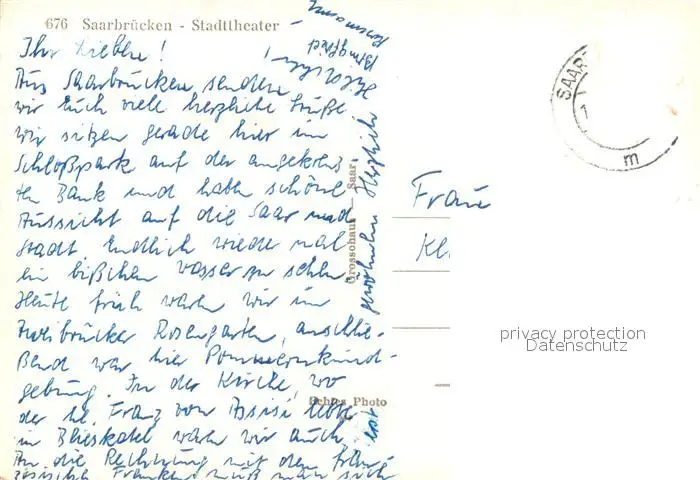 676 Saarbrücken - Stadttheater
Ihr Lieben!
Aus Saarbrücken senden
wir Euch viele herzliche Grüße
Wir sitzen gerade hier im
Schloßpark auf der angekreuz-
ten Bank und haben schöne
Aussicht auf die Saar und
Stadt Endlich wieder mal
ein bißchen Wasser zu sehen
Heute früh waren wir im
Zweibrücker Rosengarten, anschlie-
ßend war hier Pommernkund-
gebung. In der Kirche, wo
der hl. Franz von Assisi lebte
in Blieskastel waren wir auch
An die Rechnung mit den franzö-
zösischen Franken muß man sich
erst
gewöhnen Herzlich
Grosschaus Saar
Echtes Photo
SAAR
1
m
Frau
Kl
privacy protection
Datenschutz